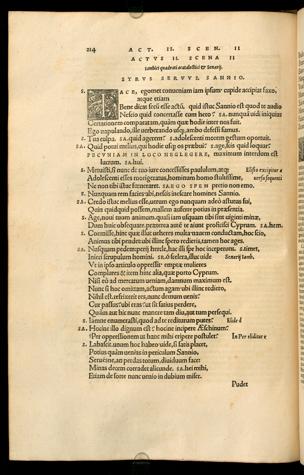 214 ACT. II. SCEN. II
ACTVS II SCENA II
Iambici quadrati acatalectici & Senarij.
SYRVS SERVVS. SANNIO.
S. TACE, egomet conueniam iam ipsum: cupide accipiat faxo,
atque etiam
Bene dicat secum esse actũ. quid istuc Sannio est quod te audio
Nescio quid concertasse cum hero? SA. nunquam uidi iniquius
Certationem comparatam, quàm quæ hodie inter nos fuit.
Ego uapulando, ille uerberando usq; ambo defessi sumus.
S. Tua culpa. SA. quid agerem? S. adolescenti morem gestum oportuit.
SA. Quí potui melius, qui hodie usq; os præbui? S. age, scis quid loquar?
PECVNIAM IN LOCO NEGLEGERE, maximum interdum est
lucrum. SA. hui.
S. Metuisti, si nunc de tuo iure concessisses paululum, atque
Adolescenti esses morigeratus, hominum homo stultissime,
Ne non tibi istuc fœneraret. SA. EGO SPEM pretio non emo.
S. Nunquam rem facies: abi, nescis inescare homines Sannio.
SA. Credo istuc melius esse, uerum ego nunquam adeò astutus fui,
Quin quidquid possem, mallem auferre potius in præsentia.
S. Age, noui tuum animum. quasi iam usquam tibi sint uiginti minæ,
Dum huic obsequare. præterea autẽ te aiunt proficisci Cyprum. SA. hem.
S. Coemisse, hinc quæ illuc ueheres multa: nauem conductam, hoc scio,
Animus tibi pendet. ubi illinc spero redieris, tamen hoc ages.
SA. Nusquam pedem. perij hercle, hac illi spe hoc inceperunt. S. timet,
Inieci scrupulum homini. SA. ô scelera, illuc uide Senarij Iamb.
Vt in ipso articulo oppressit: emptæ mulieres
Complures & item hinc alia, quæ porto Cyprum.
Nisi eò ad mercatum ueniam, damnum maximum est.
Nunc si hoc omittam, actum agam: ubi illinc rediero,
Nihil est. refrixerit res, nunc demum uenis?
Cur passus? ubi eras? ut sit satius perdere,
Quàm aut hic nunc manere tam diu, aut tum persequi.
S. Iamne enumerasti, quod ad te rediturum putes?
SA. Hoccine illo dignum est? hoccine incipere Æschinum?
Per oppressionem ut hanc mihi eripere postulet? In Per eliditur e
S. Labascit. unum hoc habeo: uide, si satis placet,
Potius quàm uenias in periculum Sannio,
Seruesne, an perdas totum, diuiduum face:
Minas decem corradet alicunde. SA. hei mihi,
Etiam de sorte nunc uenio in dubium miser.
Pudet